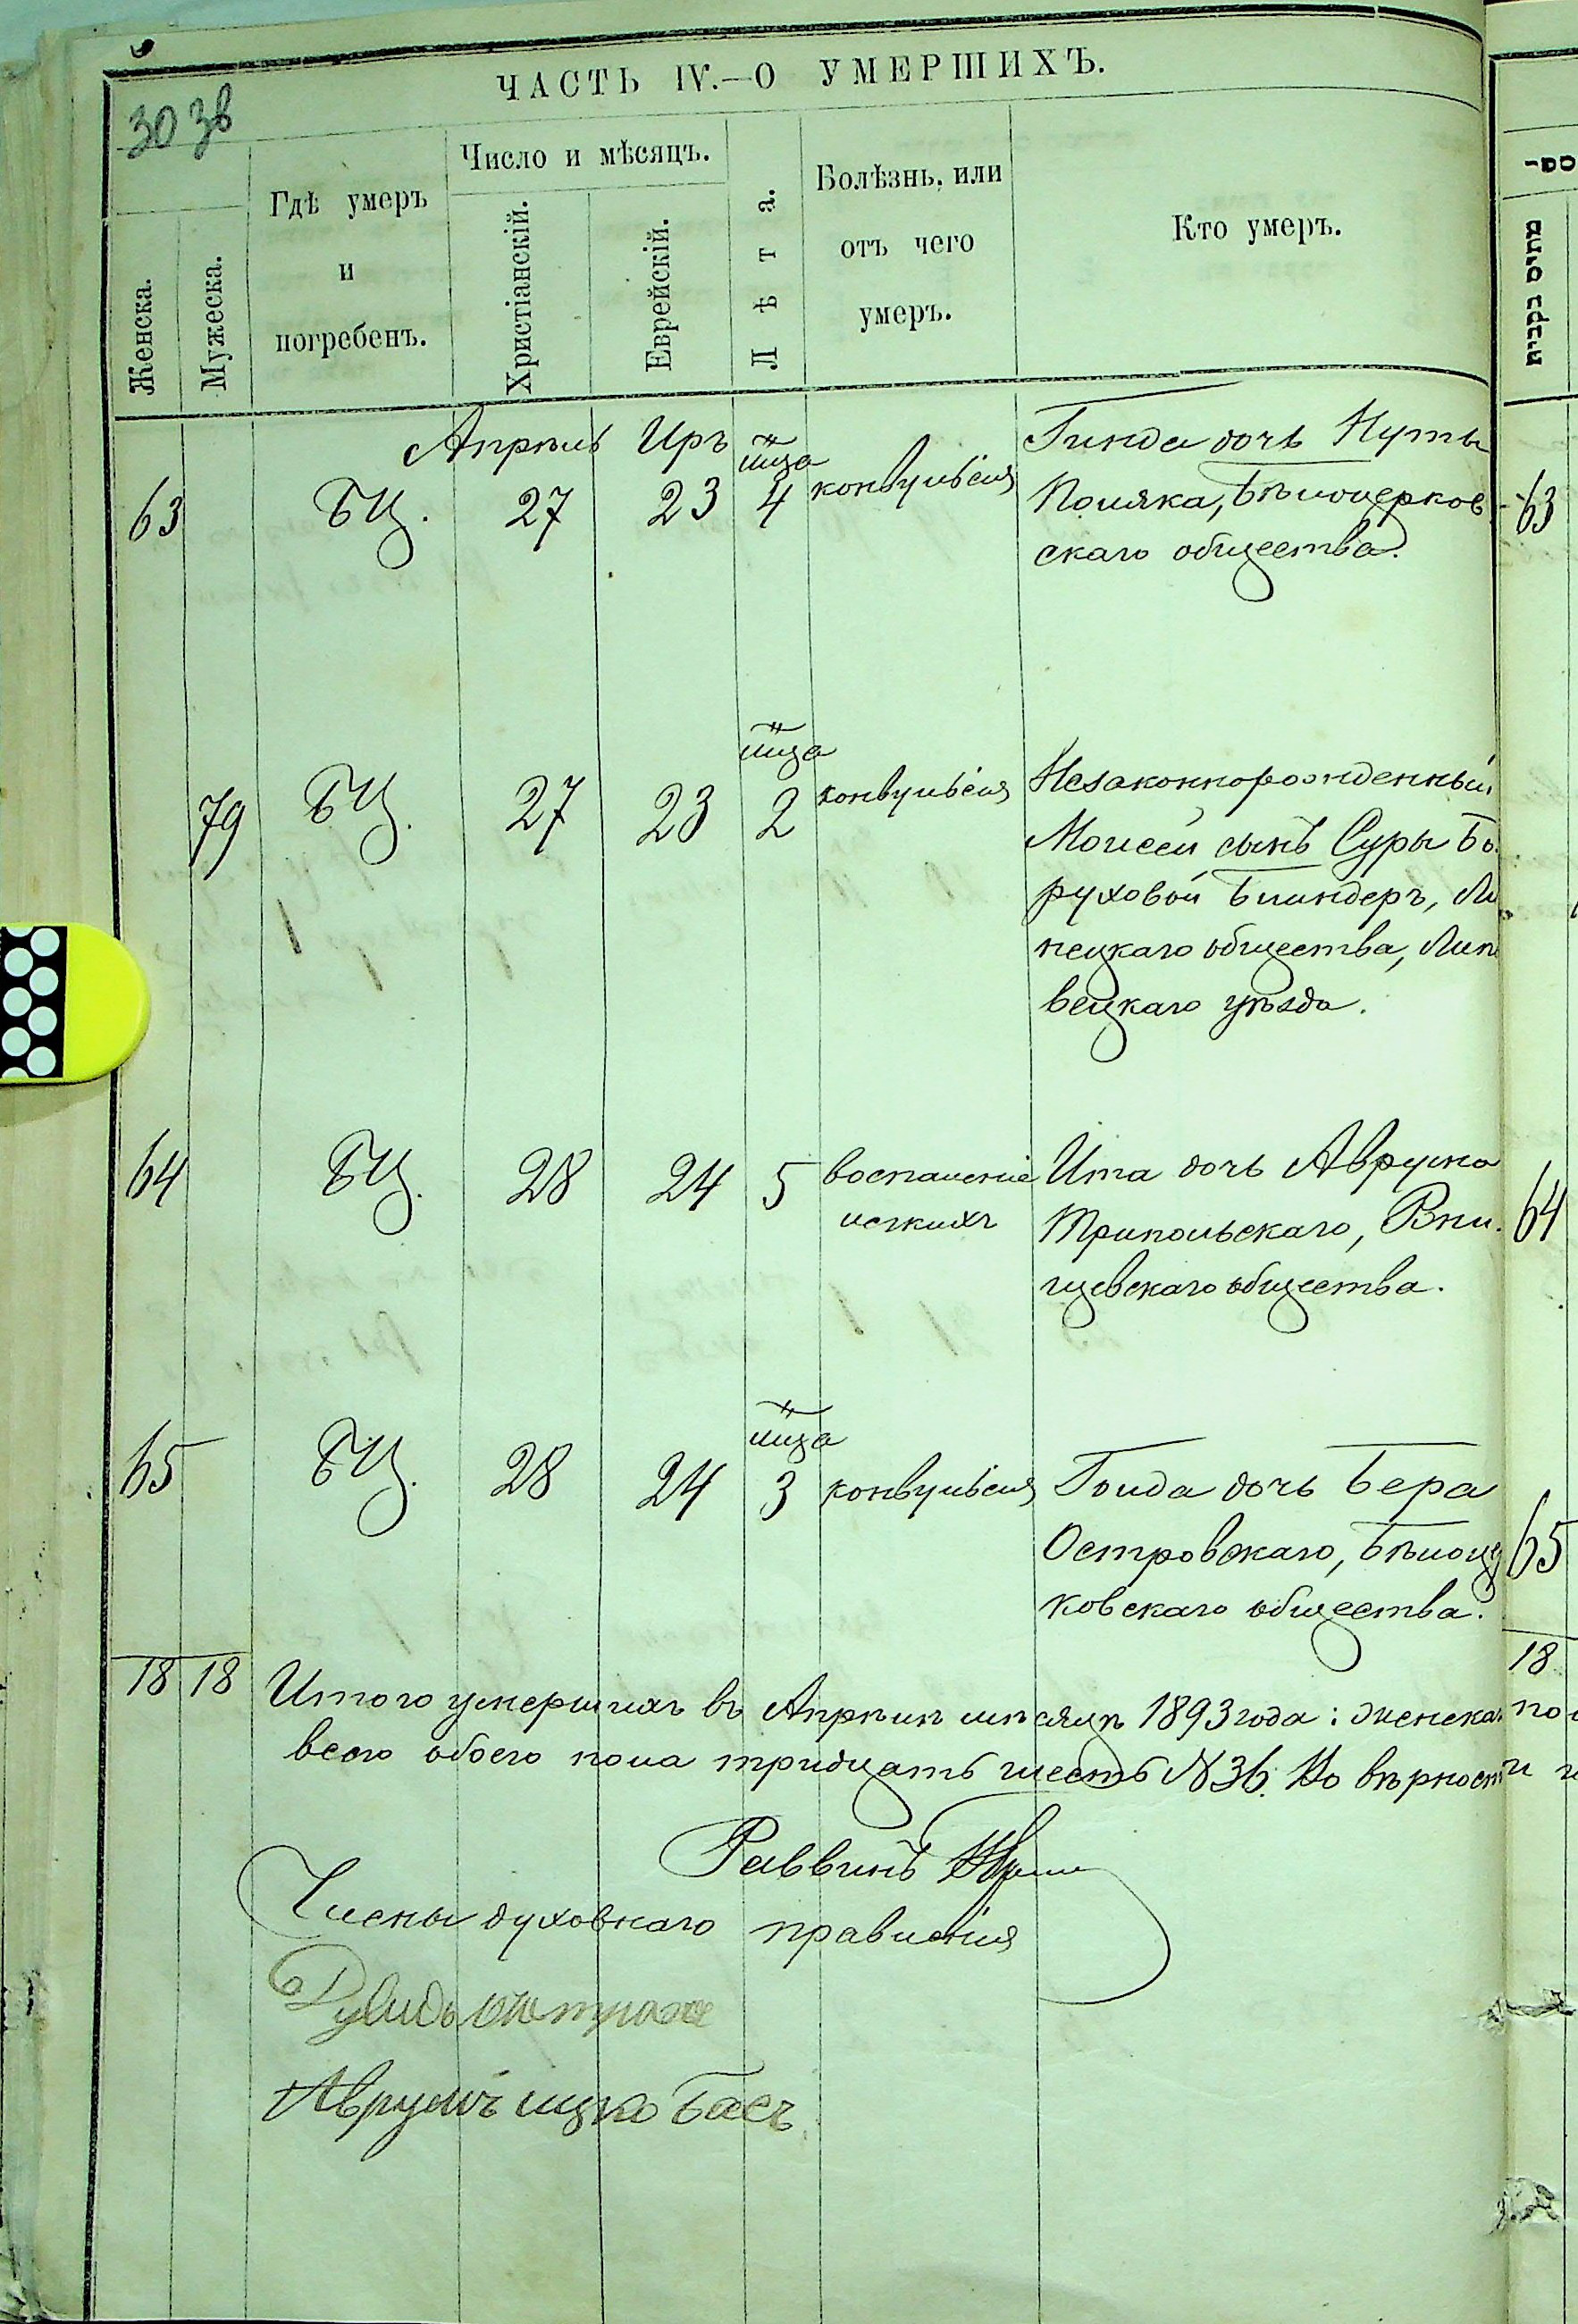 ЧАСТЬ IV.—О УМЕРШИХЪ.
30 зв
Женска.
Мужеска.
Гдѣ умеръ
и
погребенъ.
Число и мѣсяцъ.
Христіанскій.
Еврейскій.
Лѣта.
Болѣзнь, или
отъ чего
умеръ.
Кто умеръ.
מתים נקבות
Апрѣль Иръ
63 БЦ. 27 23 мца 4 конвульсія
Гинда дочь Нуты
Поляка, Бѣлоцерков
скаго общества.
63
79 БЦ. 27 23 мца 2 конвульсія
Незаконнорожденный
Моисей сынъ Суры Бо
руховой Блиндеръ, Ли
нецкаго общества, Липо
вецкаго уѣзда.
64 БЦ. 28 24 5 воспаленіе
легкихъ
Ита дочь Аврума
Трипольскаго, Ржи
щевскаго общества.
64
65 БЦ. 28 24 мца 3 конвульсія
Голда дочь Бера
Островскаго, Бѣлоцер
ковскаго общества.
65
18 18 Итого умершихъ въ Апрѣлѣ мѣсяцѣ 1893 года: женска
18
всего обоего пола тридцать шесть N 36. Но вѣрност
Раввинъ
Члены духовнаго правленія
Аврумъ Ицко Басъ